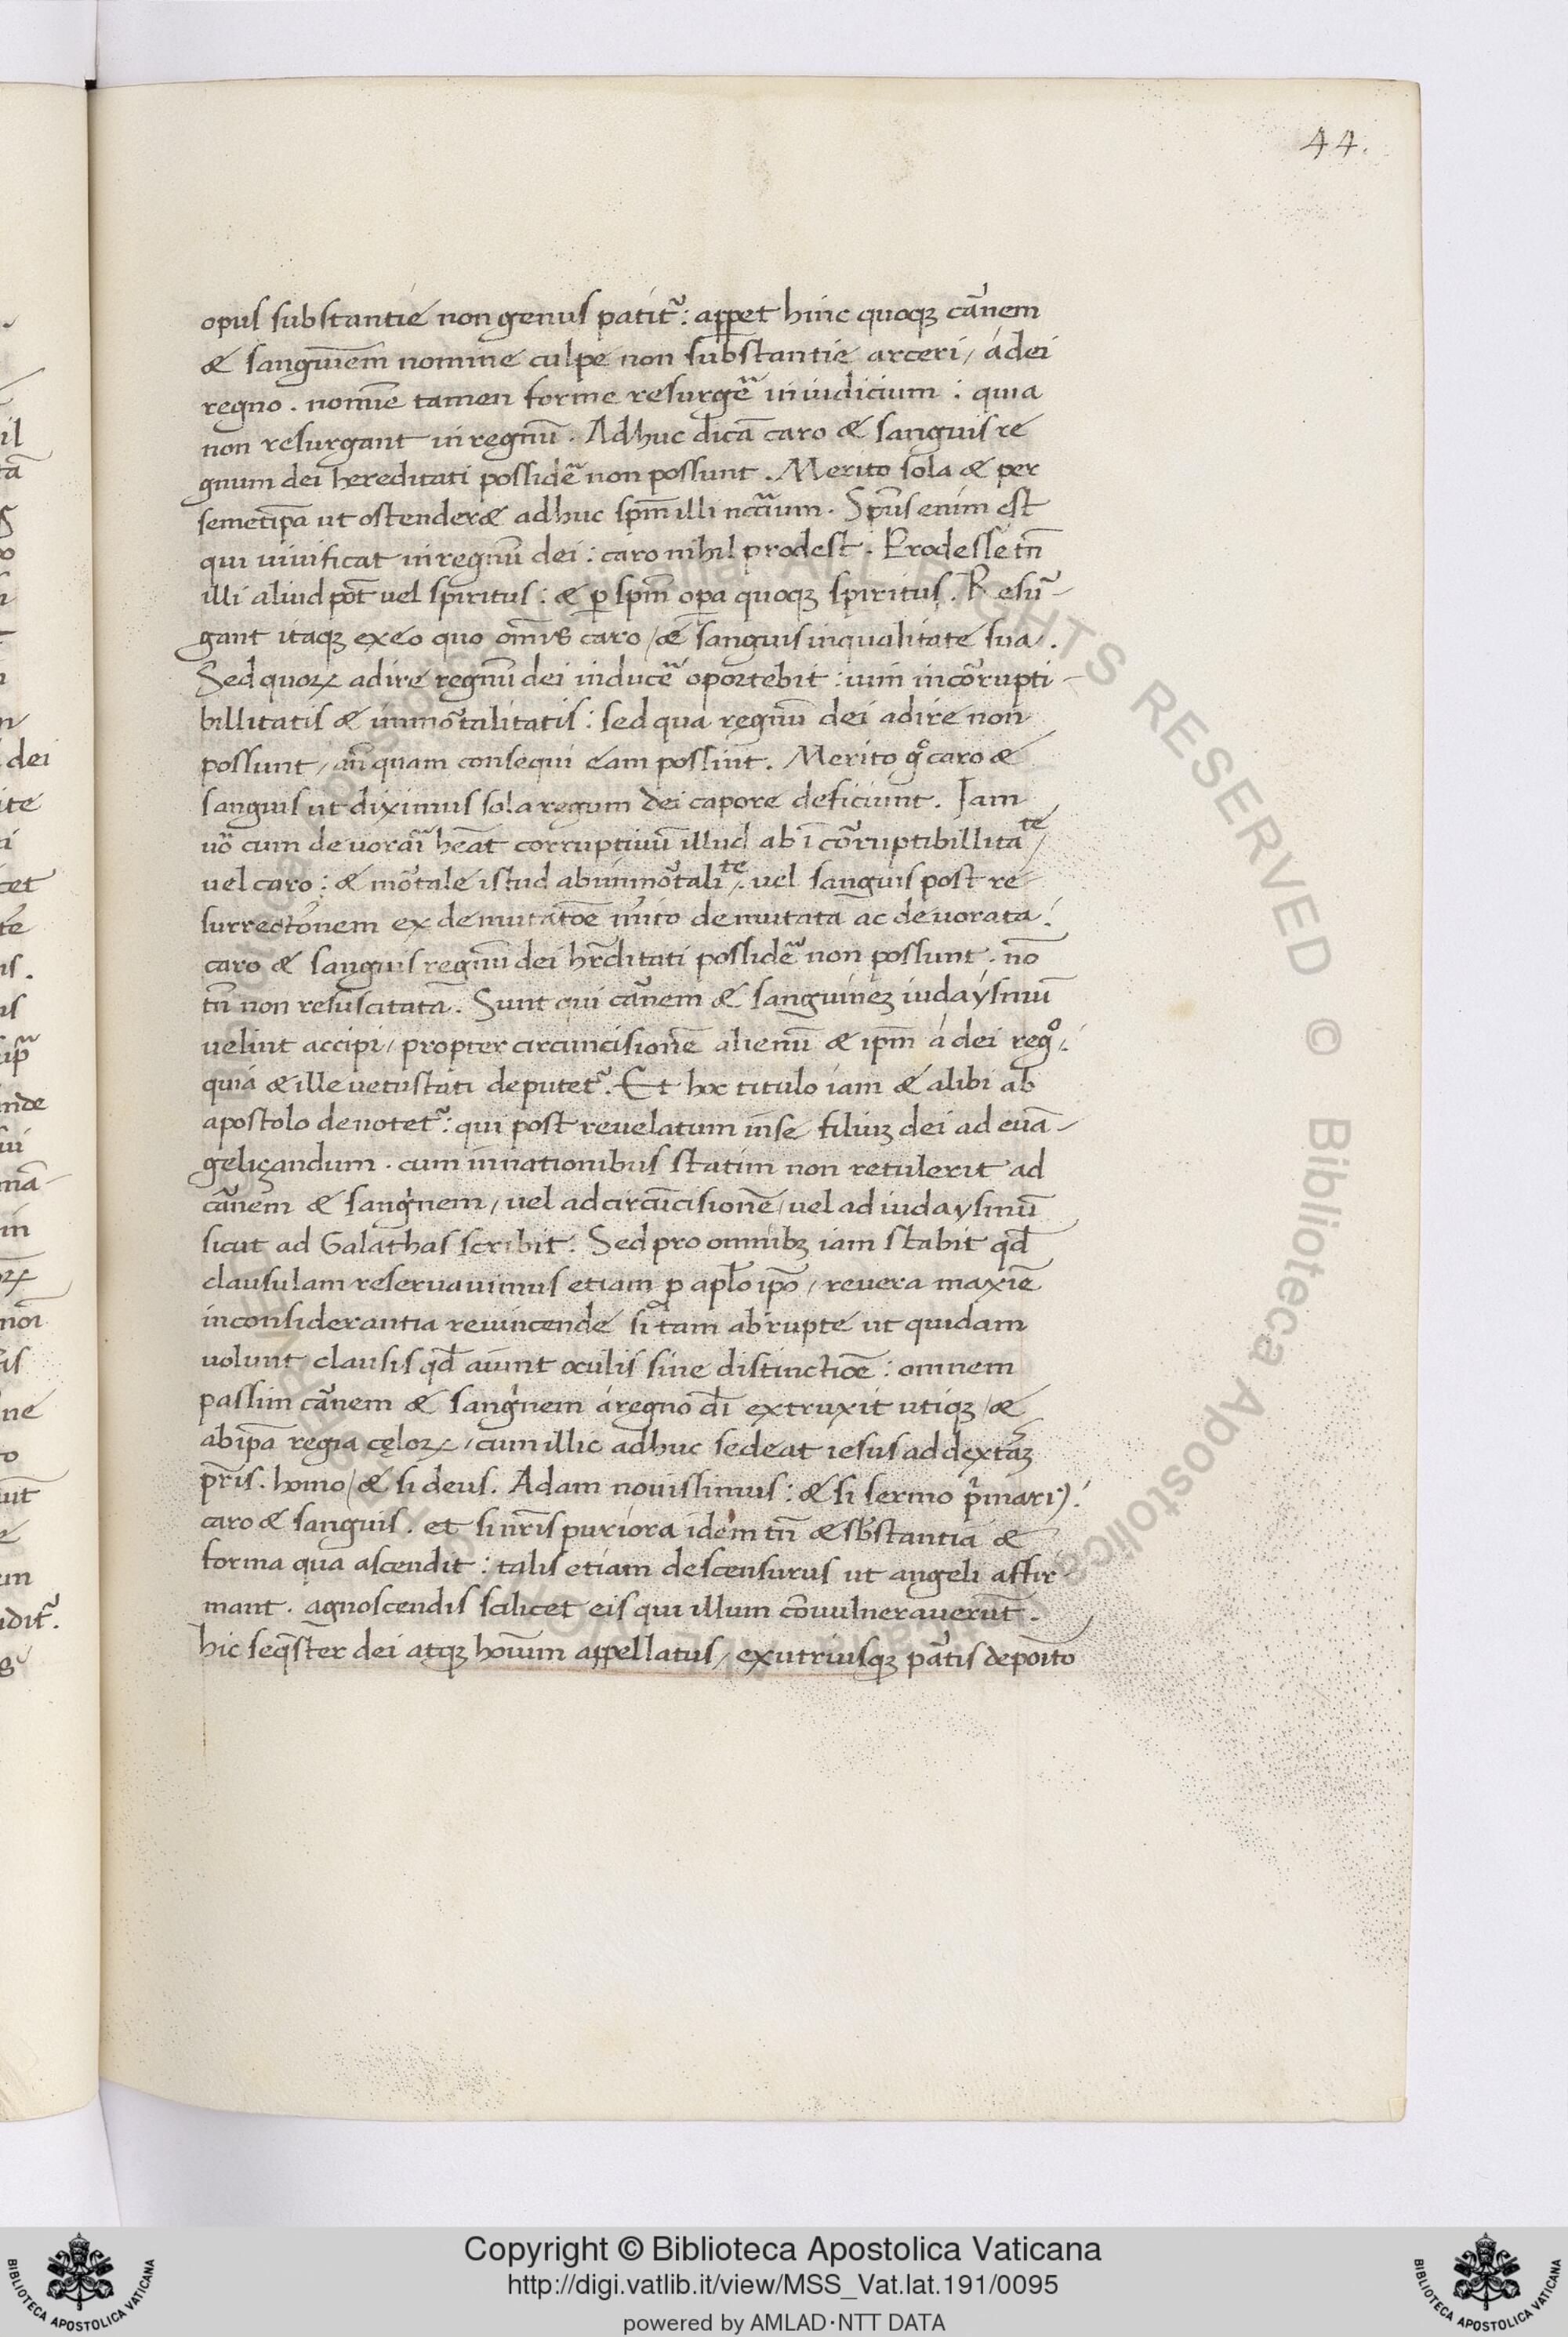 44.
opus substantie non genus patit᷑: apꝑet hinc quoqꝫ cãnem
& sanguinẽm nomine culpe non substantie arceri / a dei
regno . nomĩe tamen forme resurgẽ in iudicium : quia
non resurgant in regnũ . Adhuc dicã caro & sanguis re
gnum dei hereditati possidẽ non possunt . Merito sola & per
semetip̃a ut ostender& adhuc sp̃m illi nc̃cãium . Sp̃us enim est
qui uiuificat in regnũ dei : caro nihil prodest . Prodesse tñ
illi aliud põt uel spiritus : & ꝑ sp̃m op̃a quoqꝫ spiritus . Resũ-
gant itaqꝫ ex eo quo om̃is caro / & sanguis in qualitate sua .
Sed quoꝝ adire regnũ dei inducẽ oportebit : uim incõrupti-
billitatis & immõtalitatis : sed qua regnũ dei adire non
possunt / añ quam consequi eam possint . Merito gͦ caro &
sanguis ut diximus sola regum dei capore deficiunt . Iam
uõ cum deuorãi hẽat corruptiuũ illud ab ĩcõruptibillita te /
uel caro : & mõtale istud ab immõtali te . uel sanguis post re-
surrectõnem ex demutatõe mĩto demutata ac deuorata :
caro & sanguis regnũ dei hr̃ditati possidẽ non possunt . nõ
tñ non resuscitata . Sunt qui cãnem & sanguineꝫ iudaysmũ
uelint accipi / propter circuncisionẽ alienũ & ip̃m a dei regͦ :
quia & ille uetustati deputet᷑ . Et hoc titulo iam & alibi ab
apostolo denotet᷑ : qui post reuelatum in se filiuꝫ dei ad euã-
geliçandum . cum in nationibus statim non retulerit ad
cãnem & sangͥnem / uel ad circũcisionẽ / uel ad iudaysmũ
sicut ad Galathas scribit . Sed pro omnibꝫ iam stabit qđ
clausulam reseruauimus etiam ꝓ apl̃o ip̃o / reuera maxiẽ
inconsiderantia reuincende si tam abrupte ut quidam
uolunt clausis qđ aiunt oculis sine distinctiõe : omnem
passim cãnem & sangͥnem a regno dĩ extruxit utiqꝫ / &
ab ip̃a regia cęloꝝ / cum illic adhuc sedeat iesus ad dextãꝫ
pr̃is . homo / & si deus . Adam nouissimus : & si sermo pͥmariꝰ :
caro & sanguis . et si nr̃is puriora idem tñ & sb̃stantia &
forma qua ascendit : talis etiam descensurus ut angeli affir
mant . agnoscendis scilicet eis qui illum cõuulnerauerũt .
hic seqͥster dei atqꝫ hoĩum appellatus / ex utriusqꝫ pãtis depoĩto
Copyright © Biblioteca Apostolica Vaticana
http://digi.vatlib.it/view/MSS_Vat.lat.191/0095
powered by AMLAD·NTT DATA